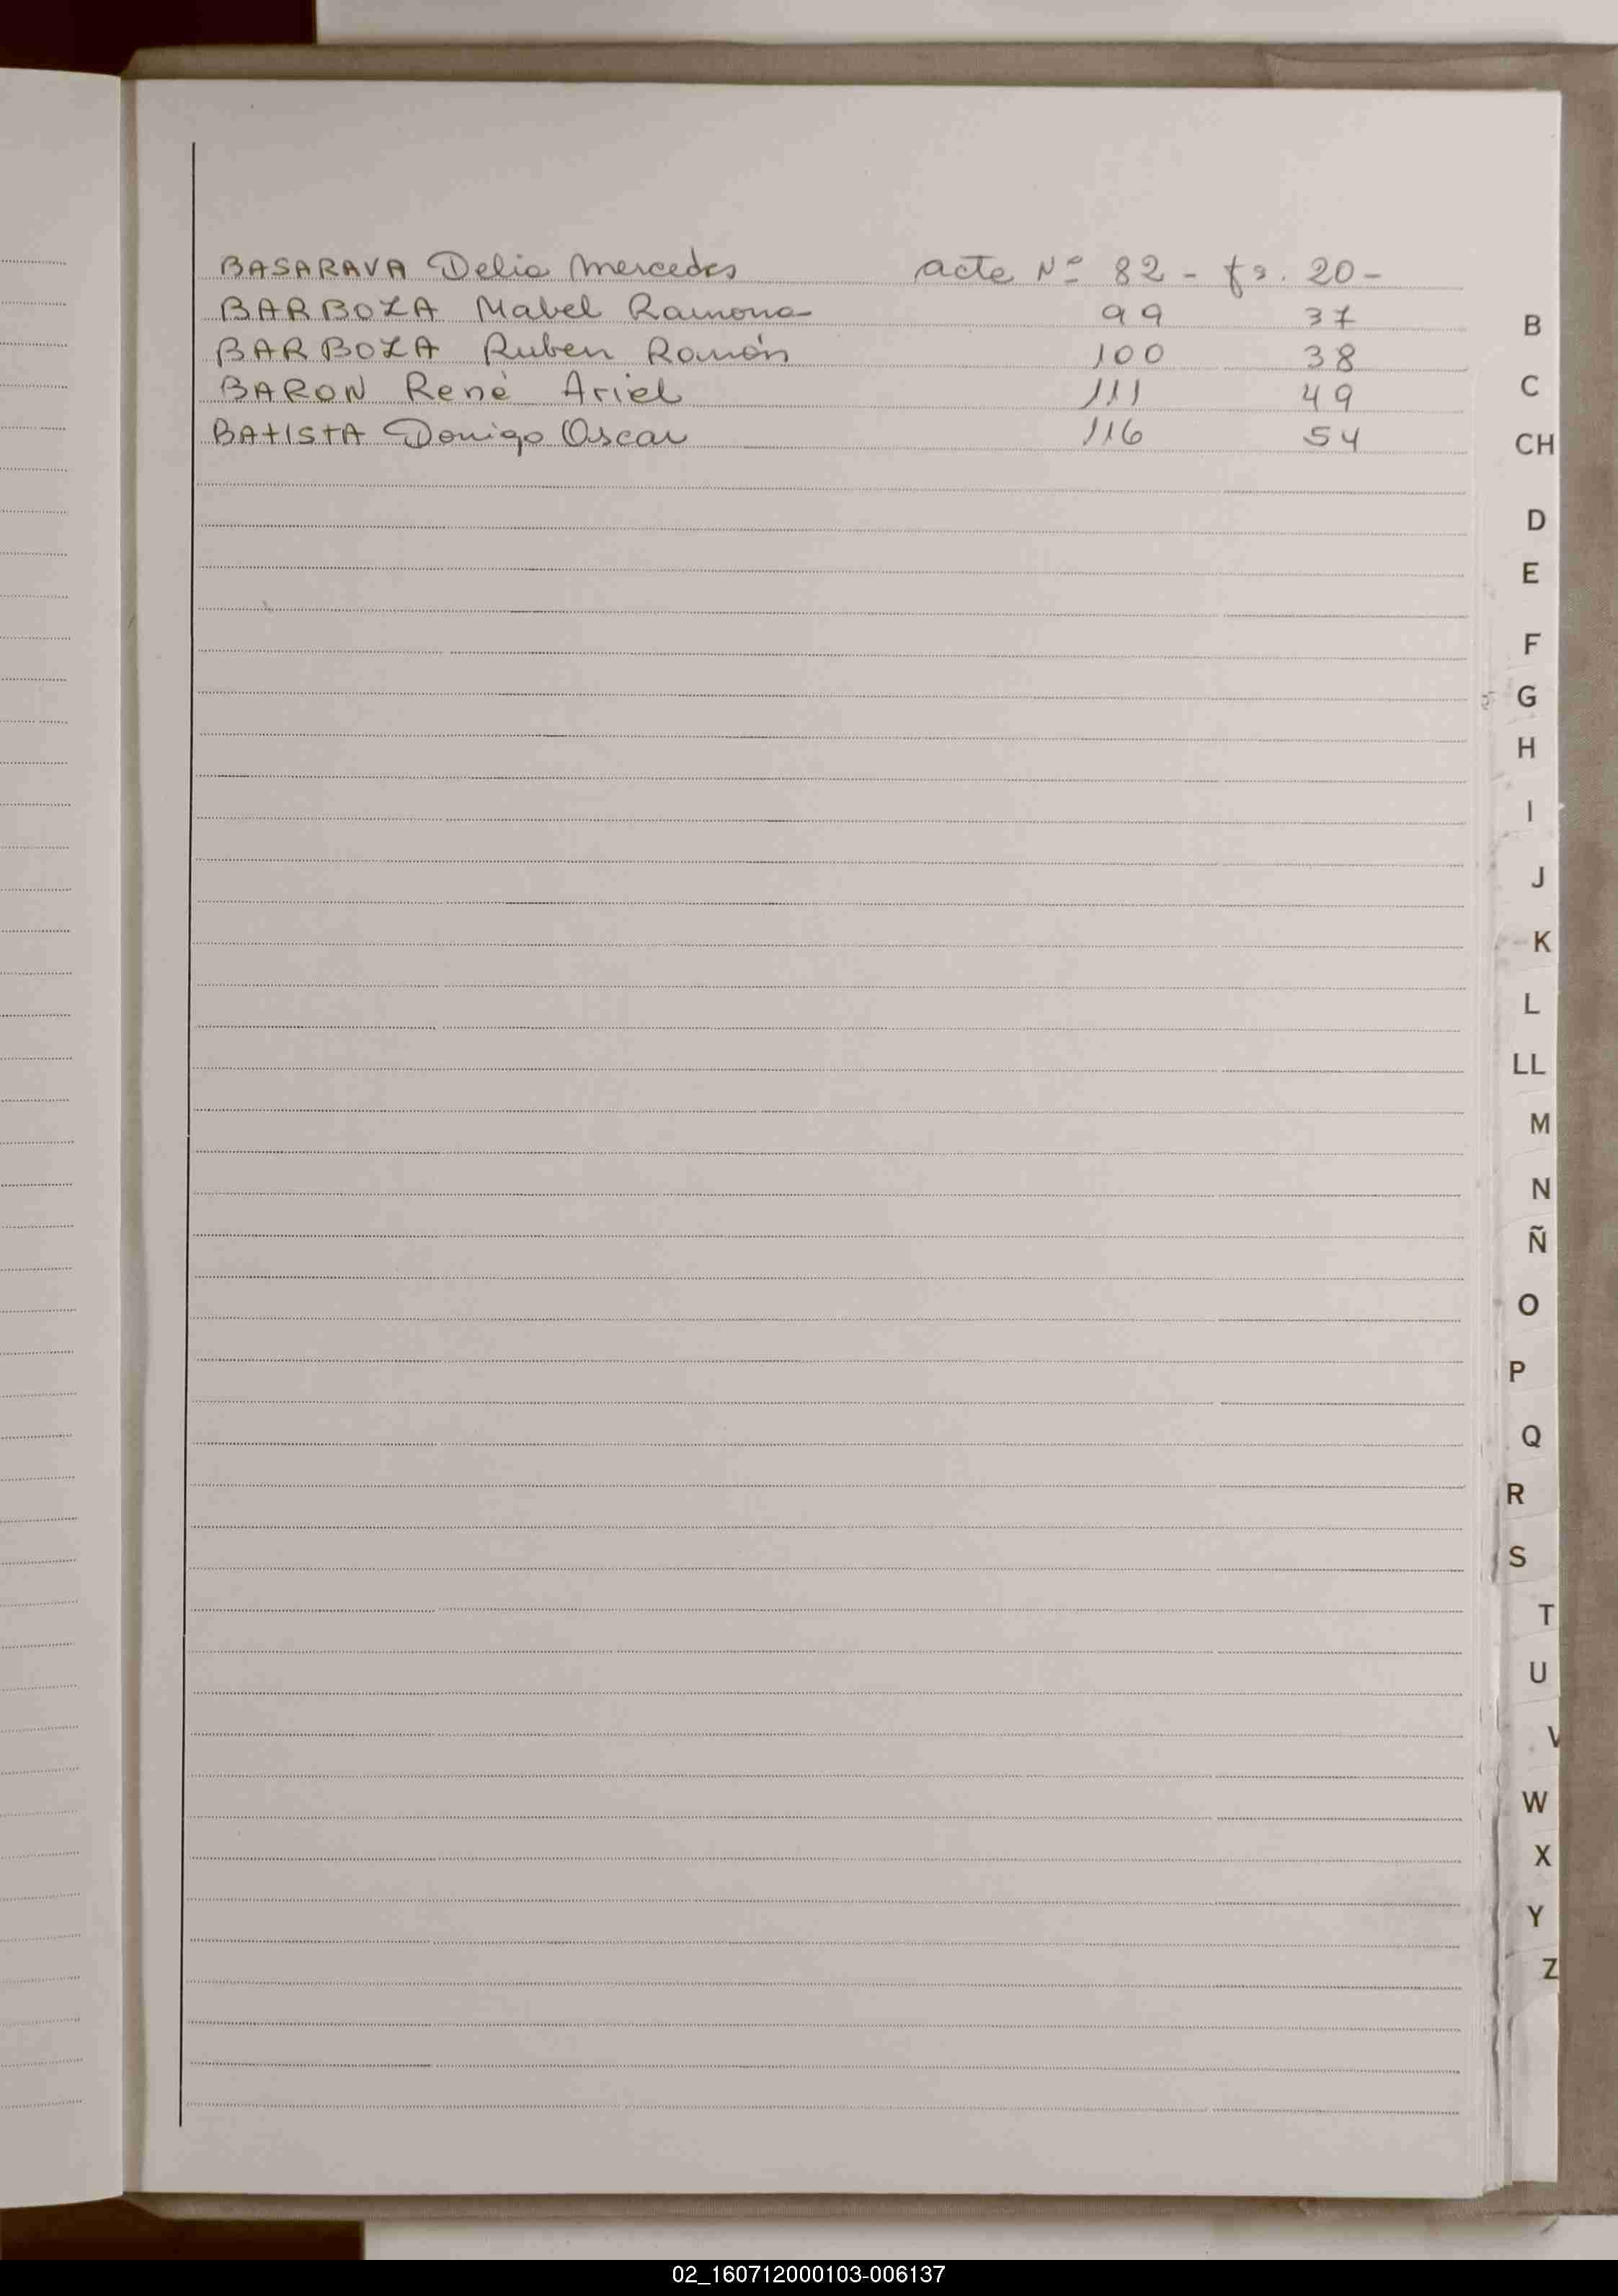 BASARAVA Delia Mercedes acta Nº 82 - fs. 20 -
BARBOZA Mabel Ramona 99 37
BARBOZA Ruben Ramón 100 38
BARON René Ariel 111 49
BATISTA Donigo Oscar 116 54
B
C
CH
D
E
F
G
H
I
J
K
L
LL
M
N
Ñ
O
P
Q
R
S
T
U
V
W
X
Y
Z
02_160712000103-006137